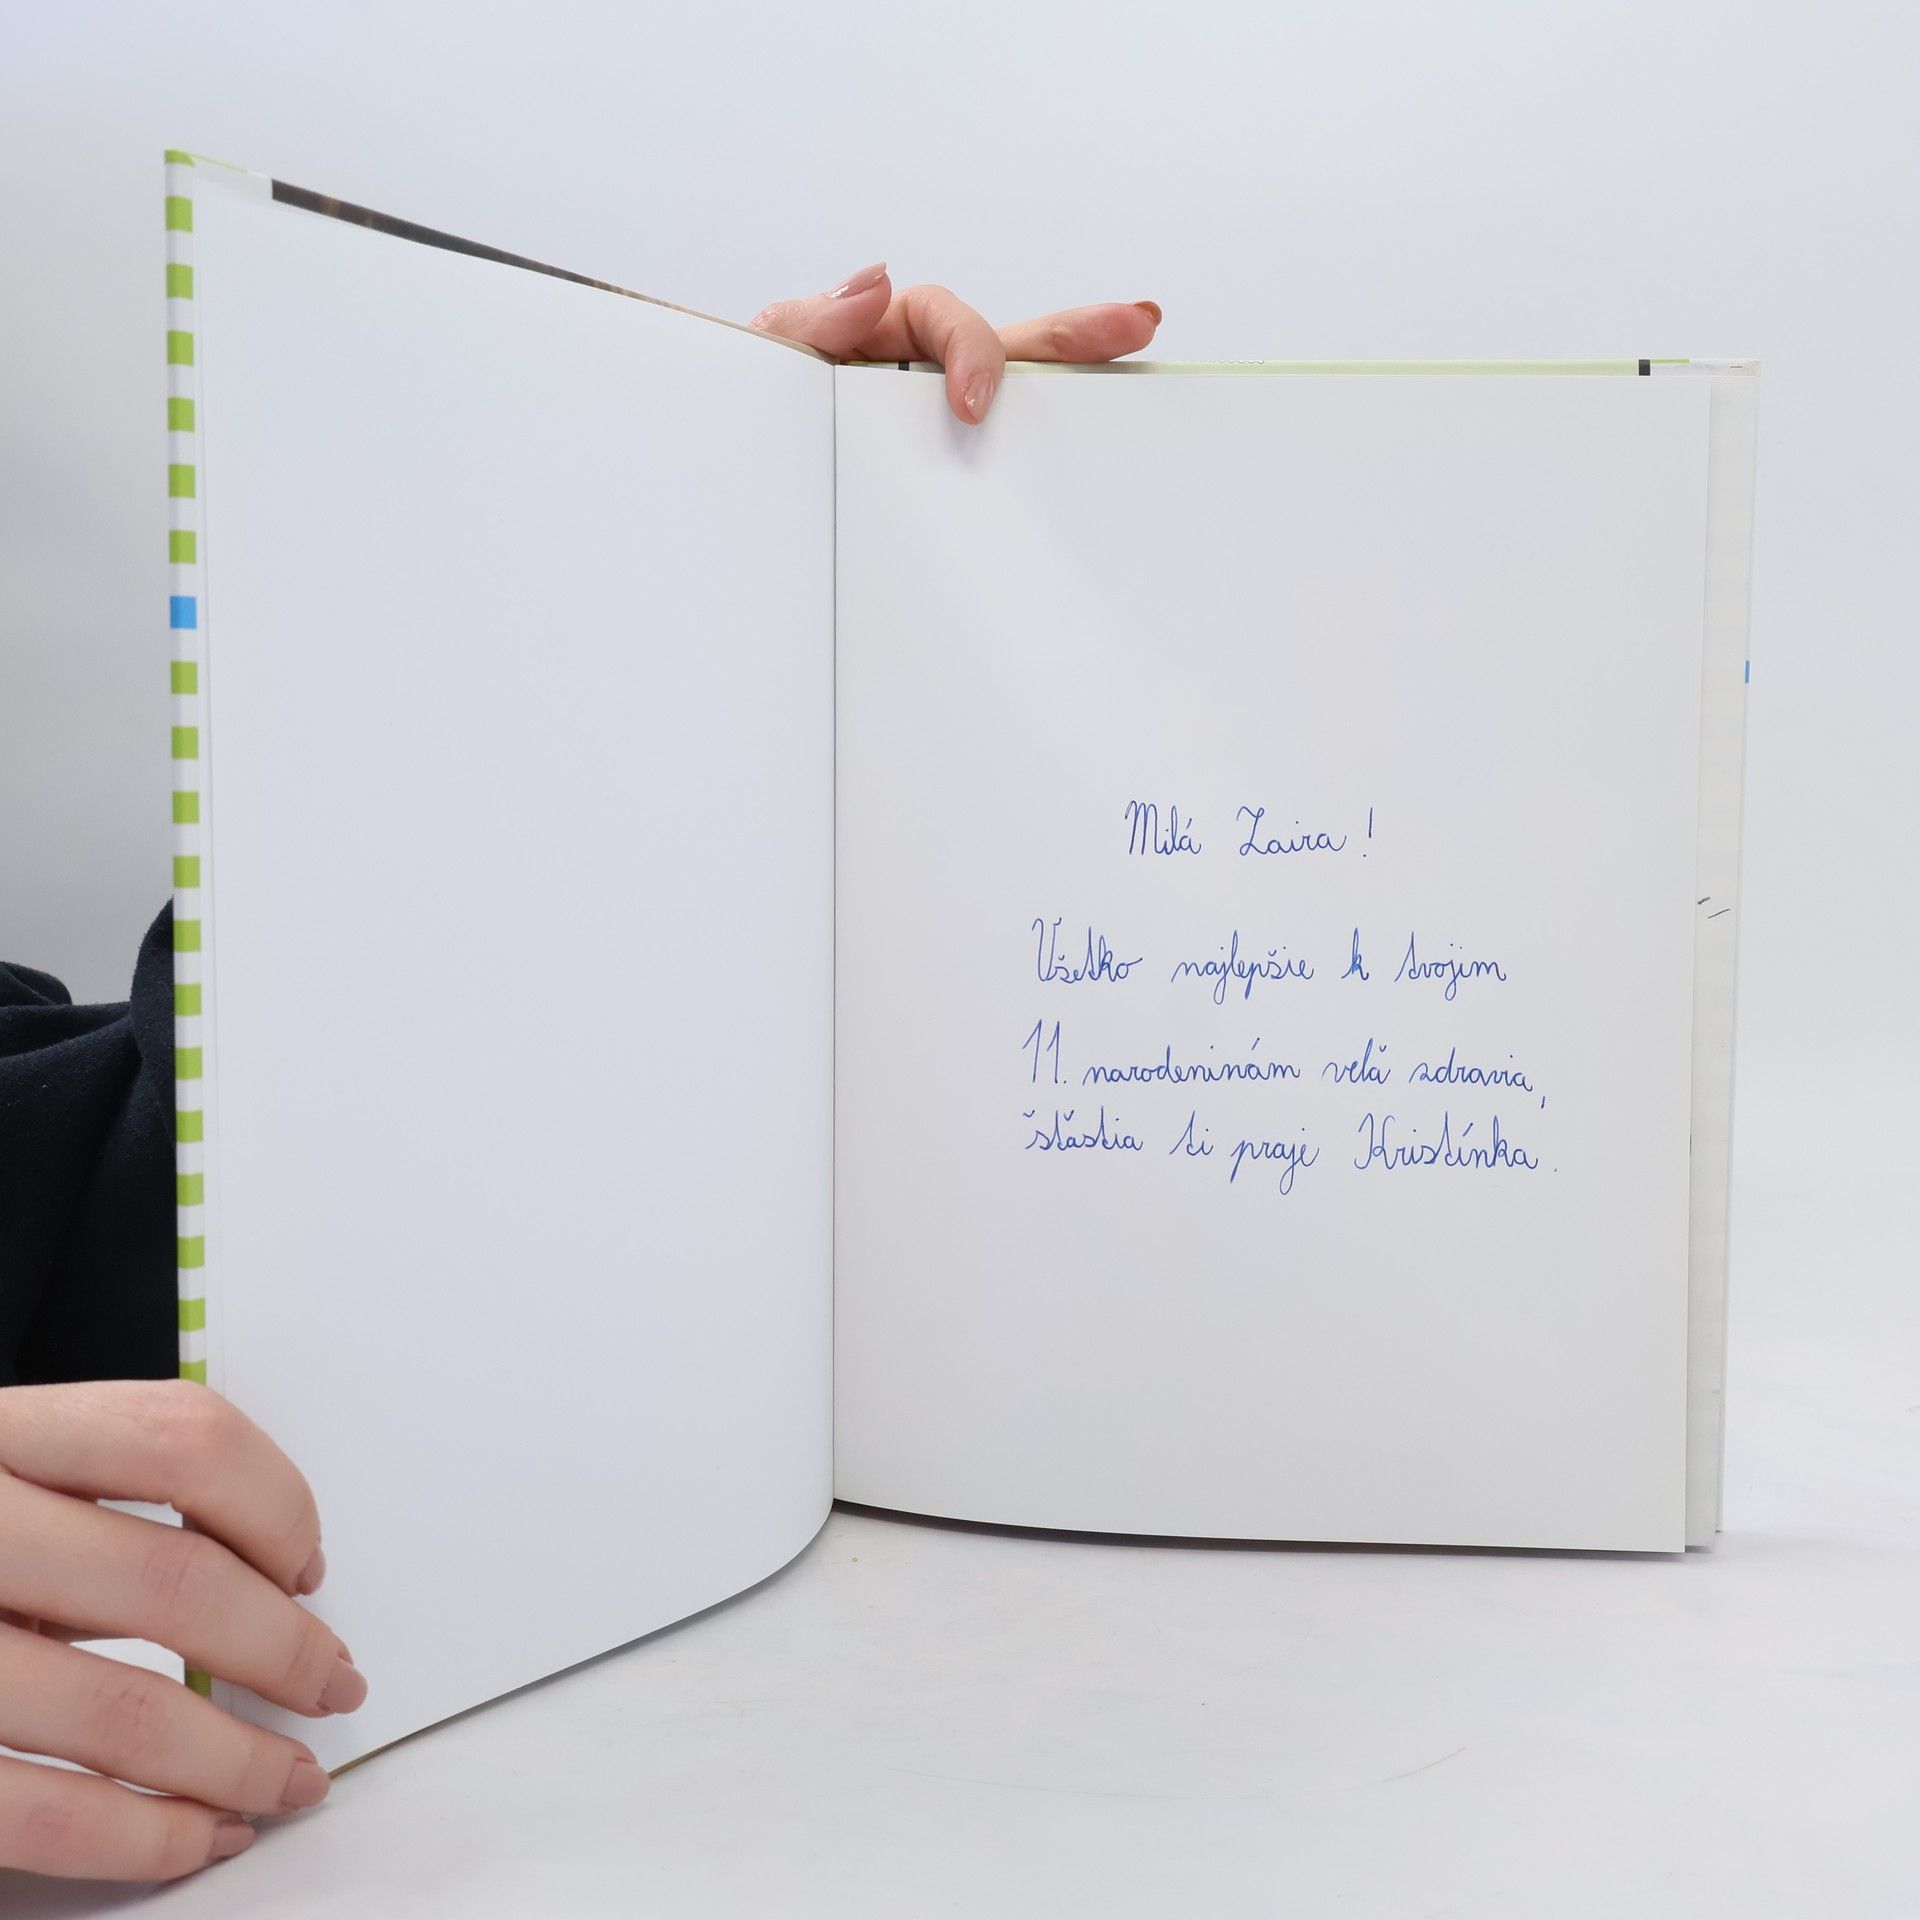 Milá Zaira!
Všetko najlepšie k tvojim
11. narodeninám veľă zdravia,
šťăstia ti praje Kristínka.